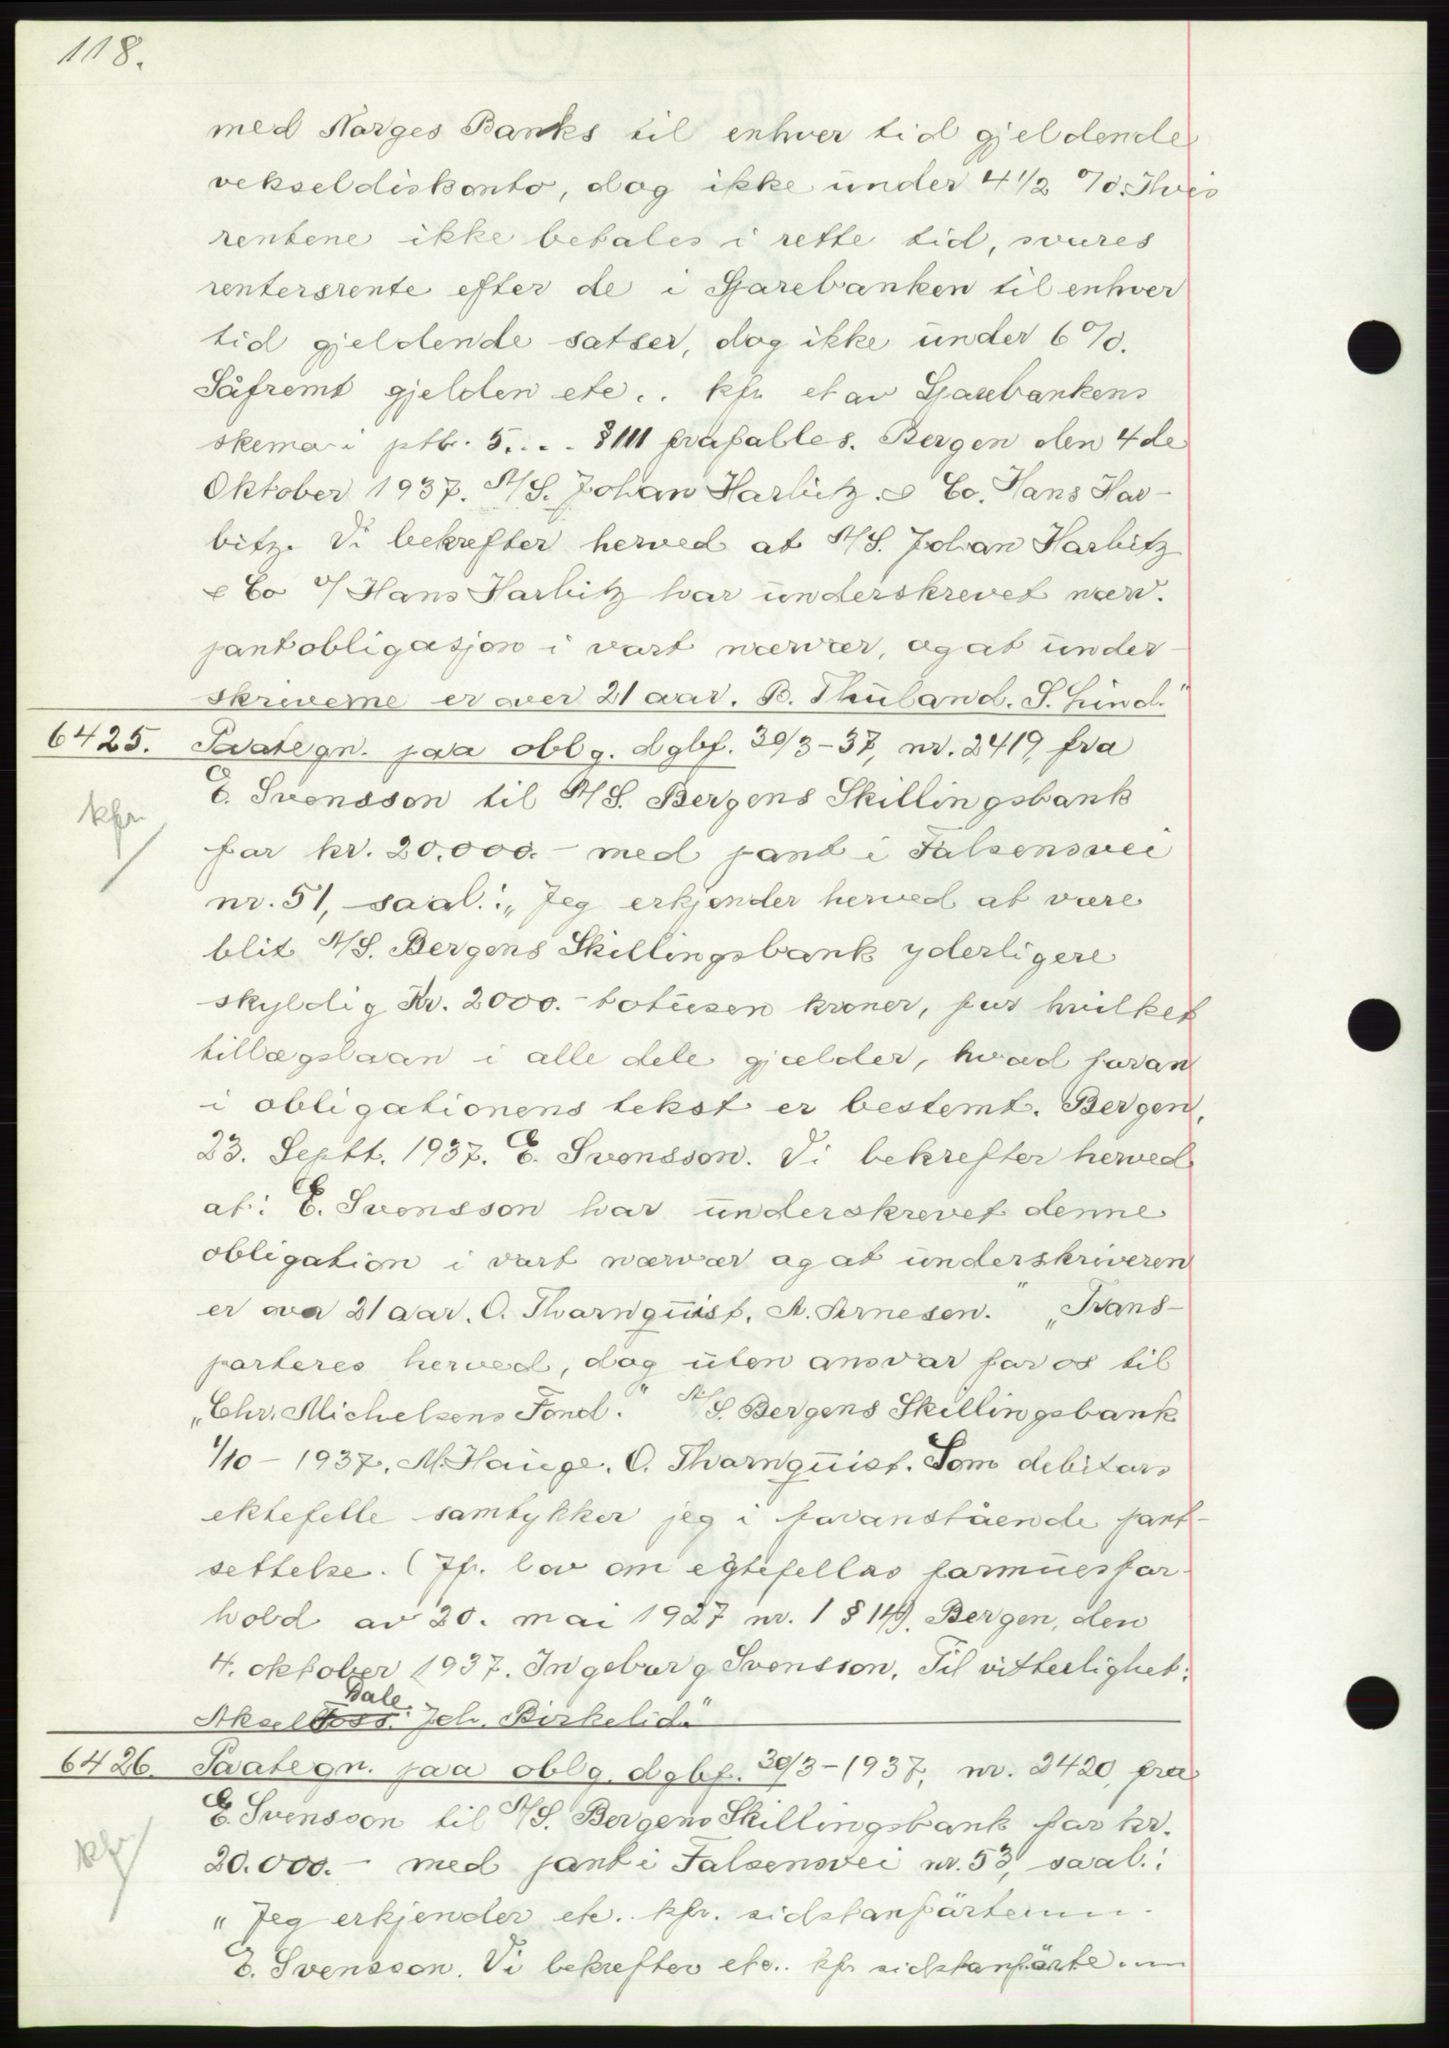 118.
med Norges Banks til enhver tid gjeldende
vekseldiskonto, dog ikke under 4 1/2 %. Hvis
rentene ikke betales i rette tid, svares
rentersrente efter de i Sparebanken til enhver
tid gjeldende satser, dog ikke under 6 %.
Såfremt gjelden etc.. kfr. et av Sparebankens
skema i ptb. 5.... § 111 frafalles. Bergen den 4de
Oktober 1937. A/S. Johan Harbitz & Co. Hans Har-
bitz. Vi bekrefter herved at A/S. Johan Harbitz
& Co v/ Hans Harbitz har underskrevet nærv.
pantobligasjon i vort nærvær, og at under-
skriverne er over 21 aar. B. Thuland. S. Lind."
6425. Paategn. paa oblg. dgbf. 30/3-37, nr. 2419, fra
E. Svensson til A/S. Bergens Skillingsbank
kfr.
for kr. 20.000.- med pant i Falsensvei
nr. 51, saal.: „Jeg erkjender herved at være
blit A/S. Bergens Skillingsbank yderligere
skyldig Kr. 2000.- totusen kroner, for hvilket
tillægslaan i alle dele gjælder, hvad foran
i obligationens tekst er bestemt. Bergen,
23. Septt. 1937. E. Svensson. Vi bekrefter herved
at: E. Svensson har underskrevet denne
obligation i vort nærvær og at underskriveren
er over 21 aar. O. Thornquist. A. Arnesen." „Trans-
porteres herved, dog uten ansvar for os til
„Chr. Michelsens Fond." A/S. Bergens Skillingsbank
1/10-1937. M. Hauge. O. Thornquist. Som debitors
ektefelle samtykker jeg i foranstående pant-
settelse. (Jfr. lov om egtefellas formuesfor-
hold av 20. mai 1927 nr. 1 § 14). Bergen, den
4. oktober 1937. Ingeborg Svensson. Til vitterlighet:
Dale.
Aksel Foss. Joh. Birkelid."
6426. Paategn. paa oblg. dgbf. 30/3-1937, nr. 2420, fra
E. Svensson til A/S. Bergens Skillingsbank for kr.
kfr
20.000.- med pant i Falsensvei nr. 53, saal.:
„Jeg erkjender etc.. kfr. sidstanførte nr.
E. Svensson. Vi bekrefter etc.. kfr sidstanførte nr.